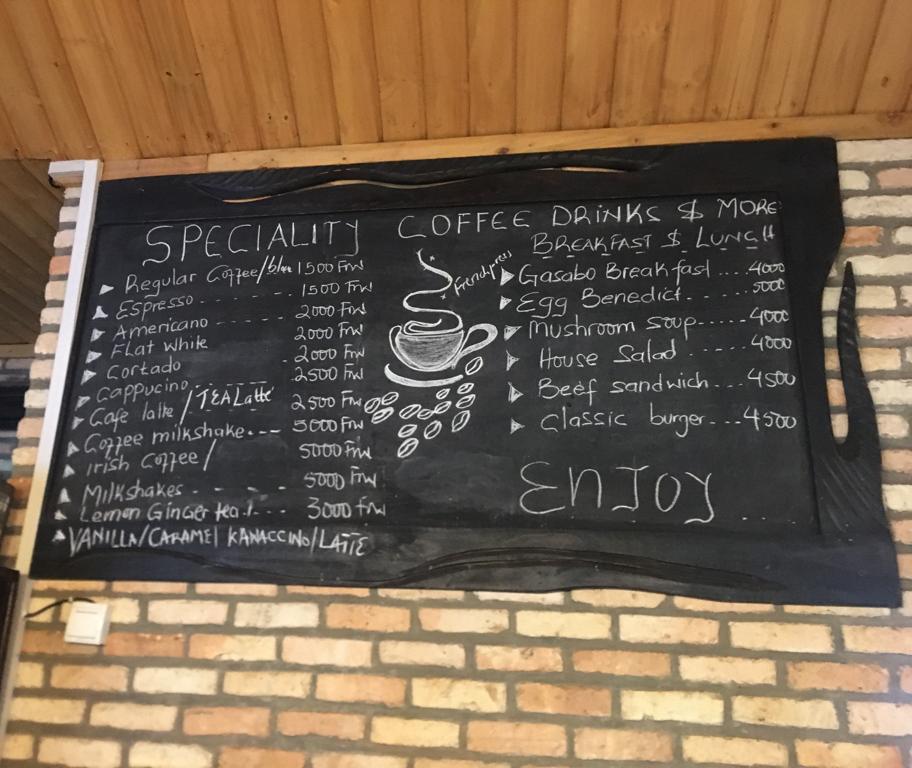 SPECIALITY COFFEE DRINKS $ MORE
Regular Coffee/ 1500 Frw
Espresso - - - - - - 1500 Frw
Americano - - - - - - 2000 Frw
FLat White 2000 Frw
Cortado . 2000 Frw
Cappucino 2500 Frw
Cafe latte / TEA Latte 2500 Frw
Coffee milkshake - - - 5000 Frw
Irish Coffee/ 5000 Frw
Milkshakes - - - - 5000 Frw
Lemon Ginger tea.!. - - - 3000 Frw
VANILLA/CARAMEL KANACCINO/LATTE
Frenchpress
BREAKFAST $ LUNCH
Gasabo Breakfast .... 4000
Egg Benedict. - - - - 5000
Mushroom soup...... 4000
House Salad - - - - - 4000
Beef sandwich.... 4500
Classic burger.... 4500
ENJOY . . . .